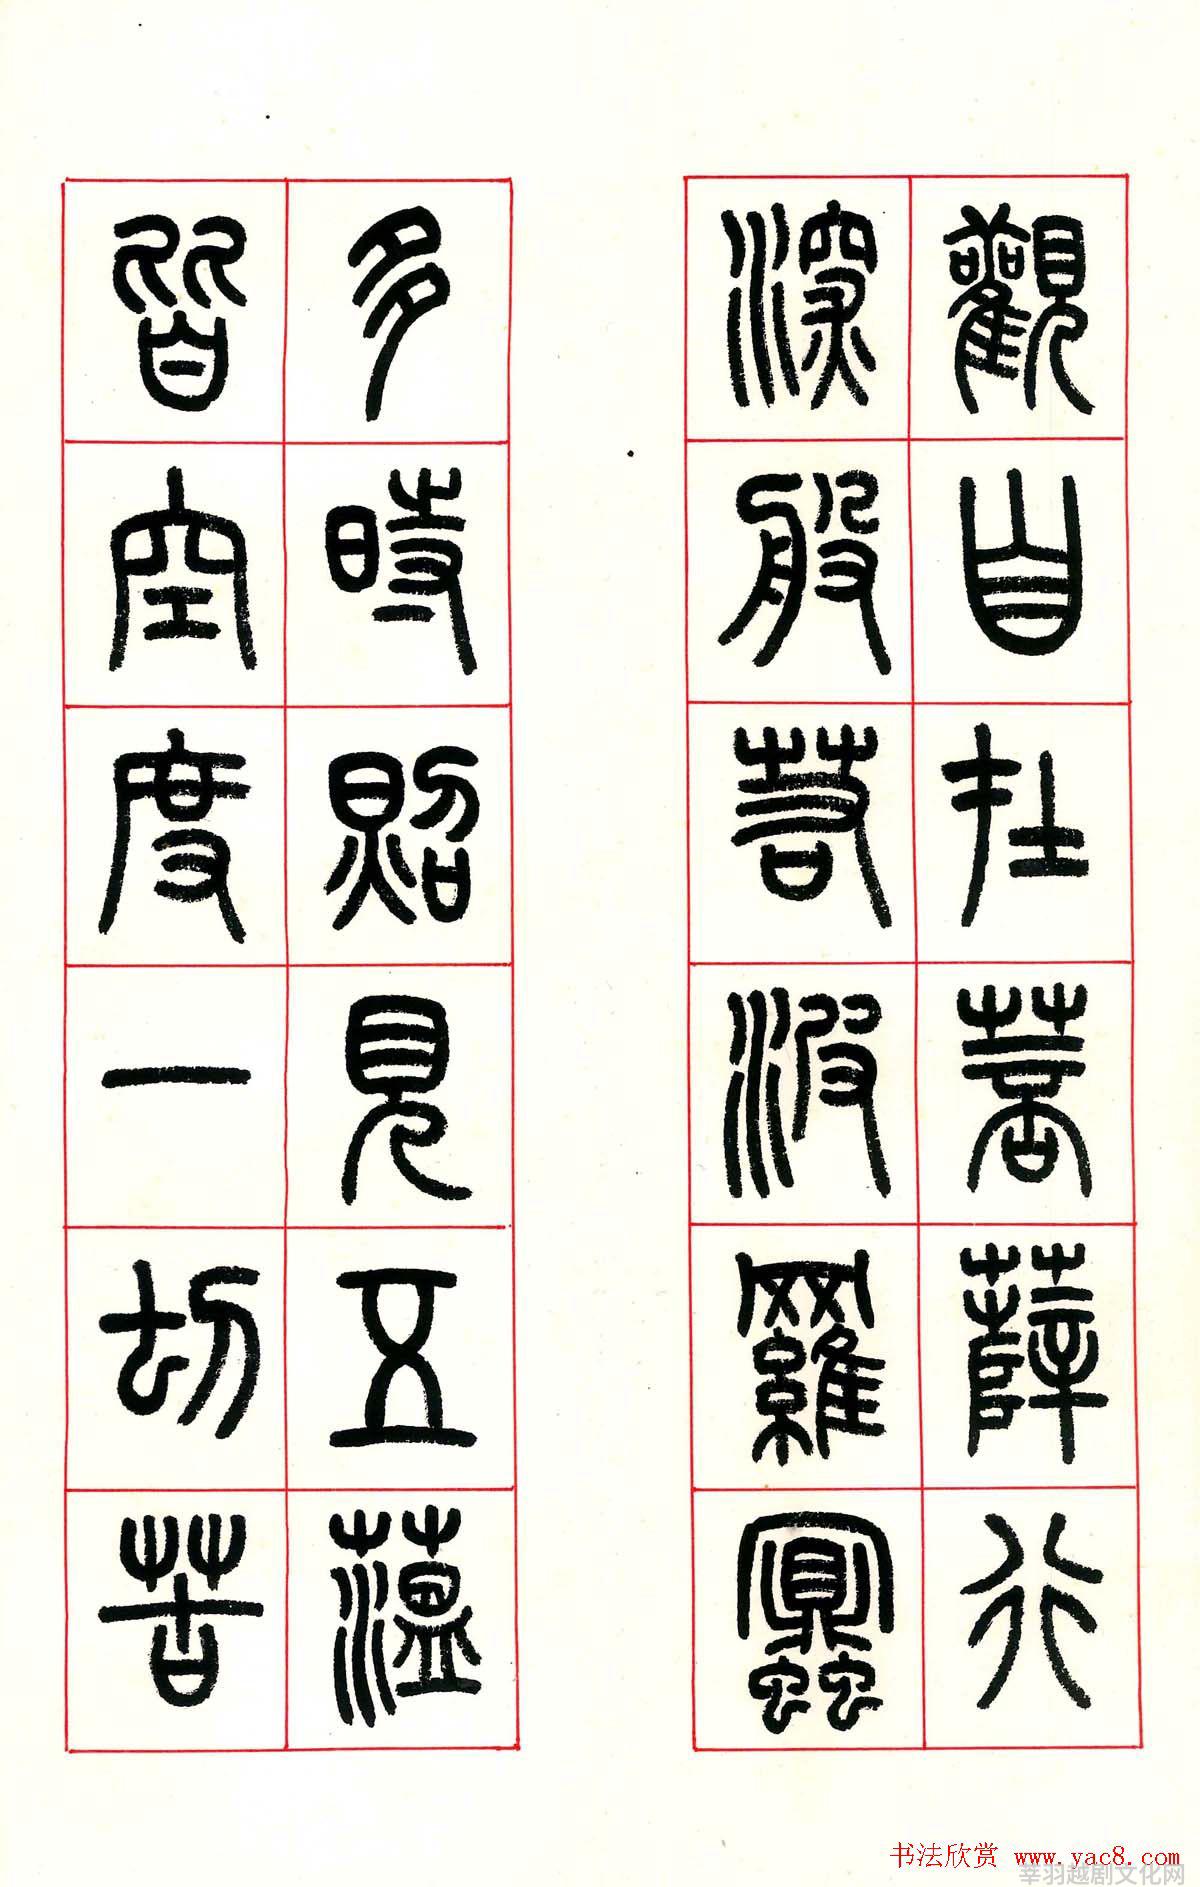 觀自在菩薩行
深般若波羅蜜
多時照見五蘊
皆空度一切苦
书法欣赏 www.yac8.com
莘羽越剧文化网